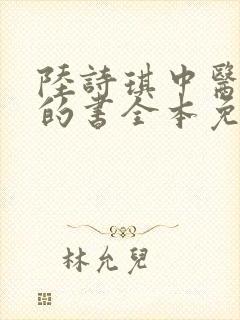 陸詩琪中醫
的書全本免
林允兒